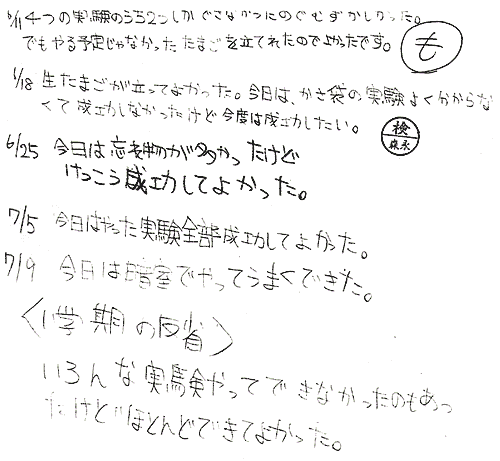 6/11 4つの実験のうち2つしかできなかったのでむずかしかった。
でもやる予定じゃなかったたまごを立てれたのでよかったです。
も
6/18 生たまごが立ってよかった。今日は、かさ袋の実験よく分からな
くて成功しなかったけど今度は成功したい。
検
森永
6/25 今日は忘れ物が多かったけど
けっこう成功してよかった。
7/5 今日はやった実験全部成功してよかった。
7/9 今日は暗室でやってうまくできた。
〈1学期の反省〉
いろんな実験やってできなかったのもあっ
たけどほとんどできてよかった。